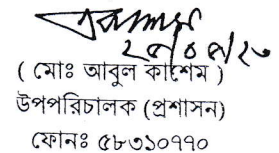 ( মোঃ আবুল কাশেম )
উপপরিচালক (প্রশাসন)
ফোনঃ ৫৮৩১০৭৭০